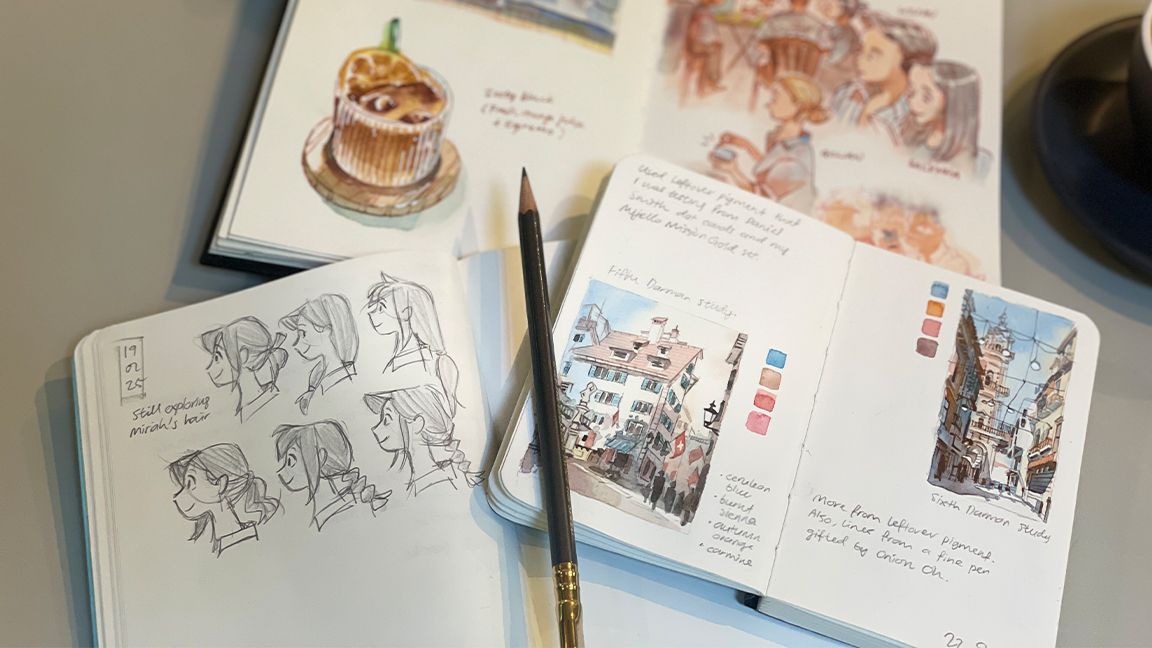 Used leftover pigment that
I was testing from Daniel
Smith dot cards and my
Mijello Mission Gold set.
Fifth Darman Study
19
02
25
Still exploring
Miriah's hair
• cerulean
blue
• burnt
sienna
• autumn
orange
• carmine
Sixth Darman Study
More from leftover pigment.
Also, liner from a fine pen
gifted by Onion Oh.